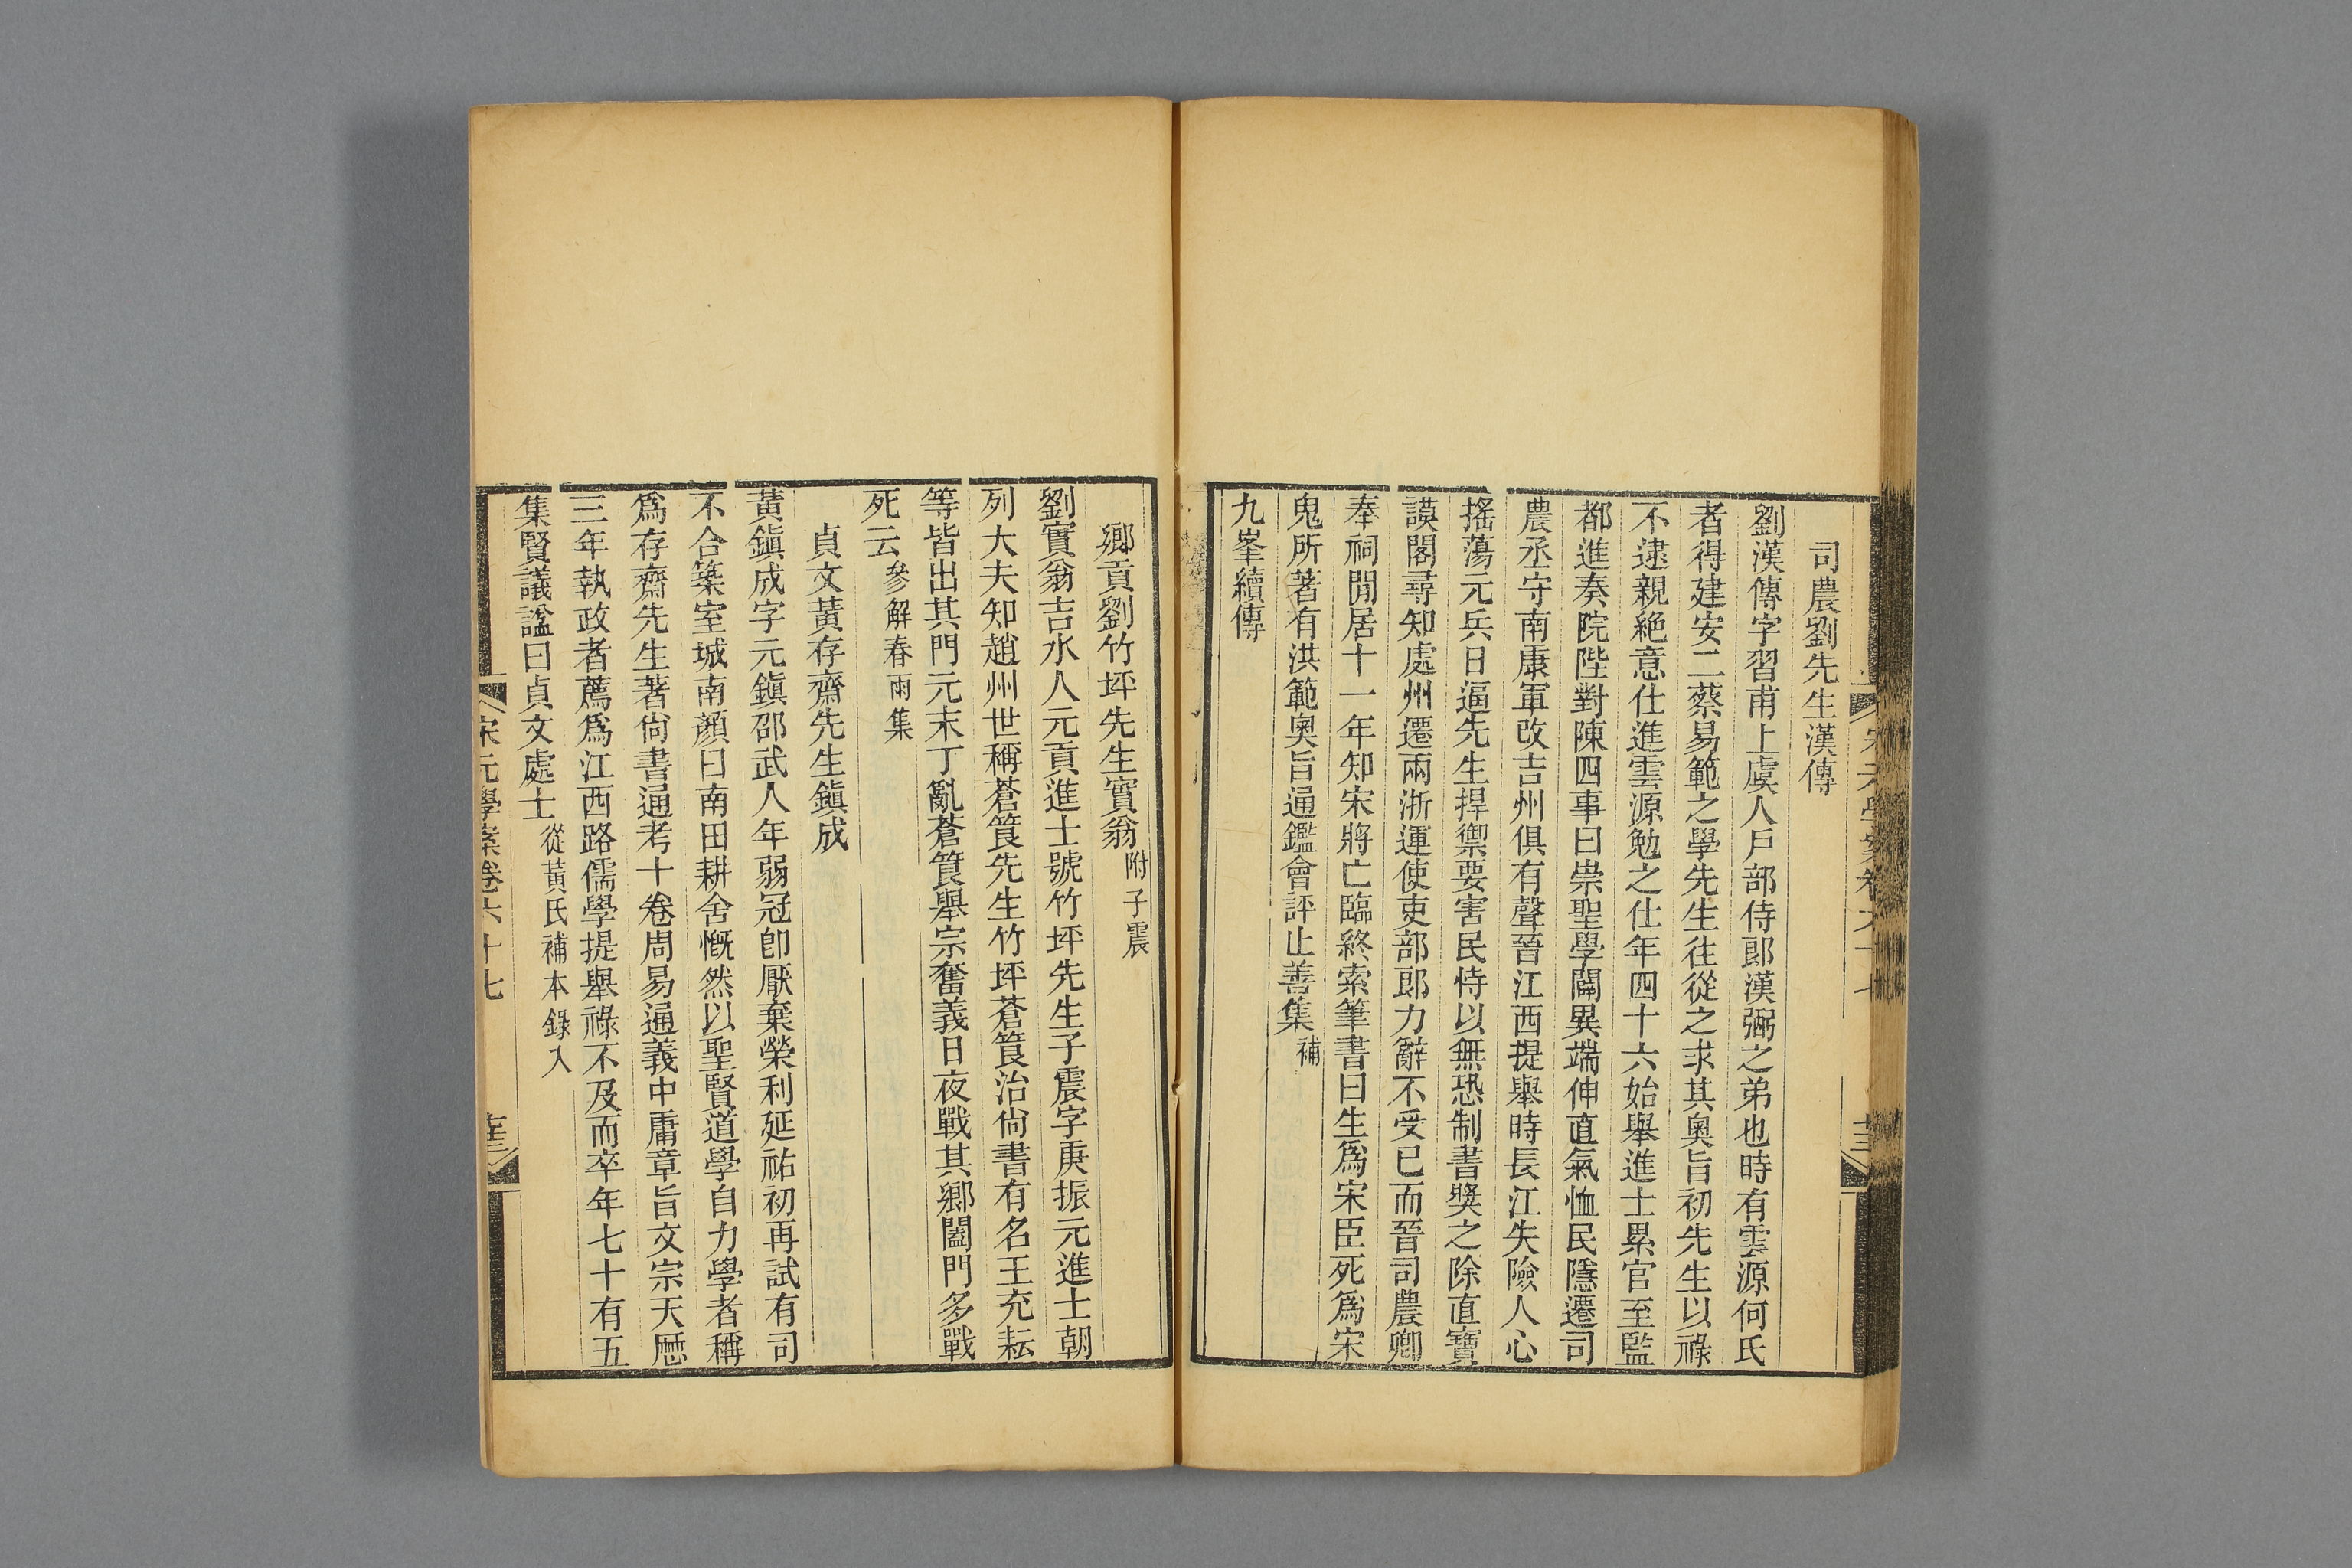 司農劉先生漢傳
劉漢傳字習甫上虞人戶部侍郎漢弼之弟也時有雲源何氏
者得建安二蔡易範之學先生往從之求其奧旨初先生以祿
不逮親絶意仕進雲源勉之仕年四十六始舉進士累官至監
都進奏院陛對陳四事曰崇聖學闢異端伸直氣恤民隱遷司
農丞守南康軍改吉州俱有聲晉江西提舉時長江失險人心
搖蕩元兵日逼先生捍禦要害民恃以無恐制書獎之除直寶
謨閣尋知處州遷兩浙運使吏部郎力辭不受已而晉司農卿
奉祠閒居十一年知宋將亡臨終索筆書曰生爲宋臣死爲宋
鬼所著有洪範奧旨通鑑會評止善集補
九峯續傳
鄉貢劉竹坪先生實翁附子震
劉實翁吉水人元貢進士號竹坪先生子震字庚振元進士朝
列大夫知趙州世稱蒼筤先生竹坪蒼筤治尙書有名王充耘
等皆出其門元末丁亂蒼筤舉宗奮義日夜戰其鄉闔門多戰
死云參解春雨集
貞文黃存齋先生鎭成
黃鎭成字元鎭邵武人年弱冠卽厭棄榮利延祐初再試有司
不合築室城南顏曰南田耕舍慨然以聖賢道學自力學者稱
爲存齋先生著尙書通考十卷周易通義中庸章旨文宗天厯
三年執政者薦爲江西路儒學提舉祿不及而卒年七十有五
集賢議諡曰貞文處士從黃氏補本錄入
宋元學案卷六十七